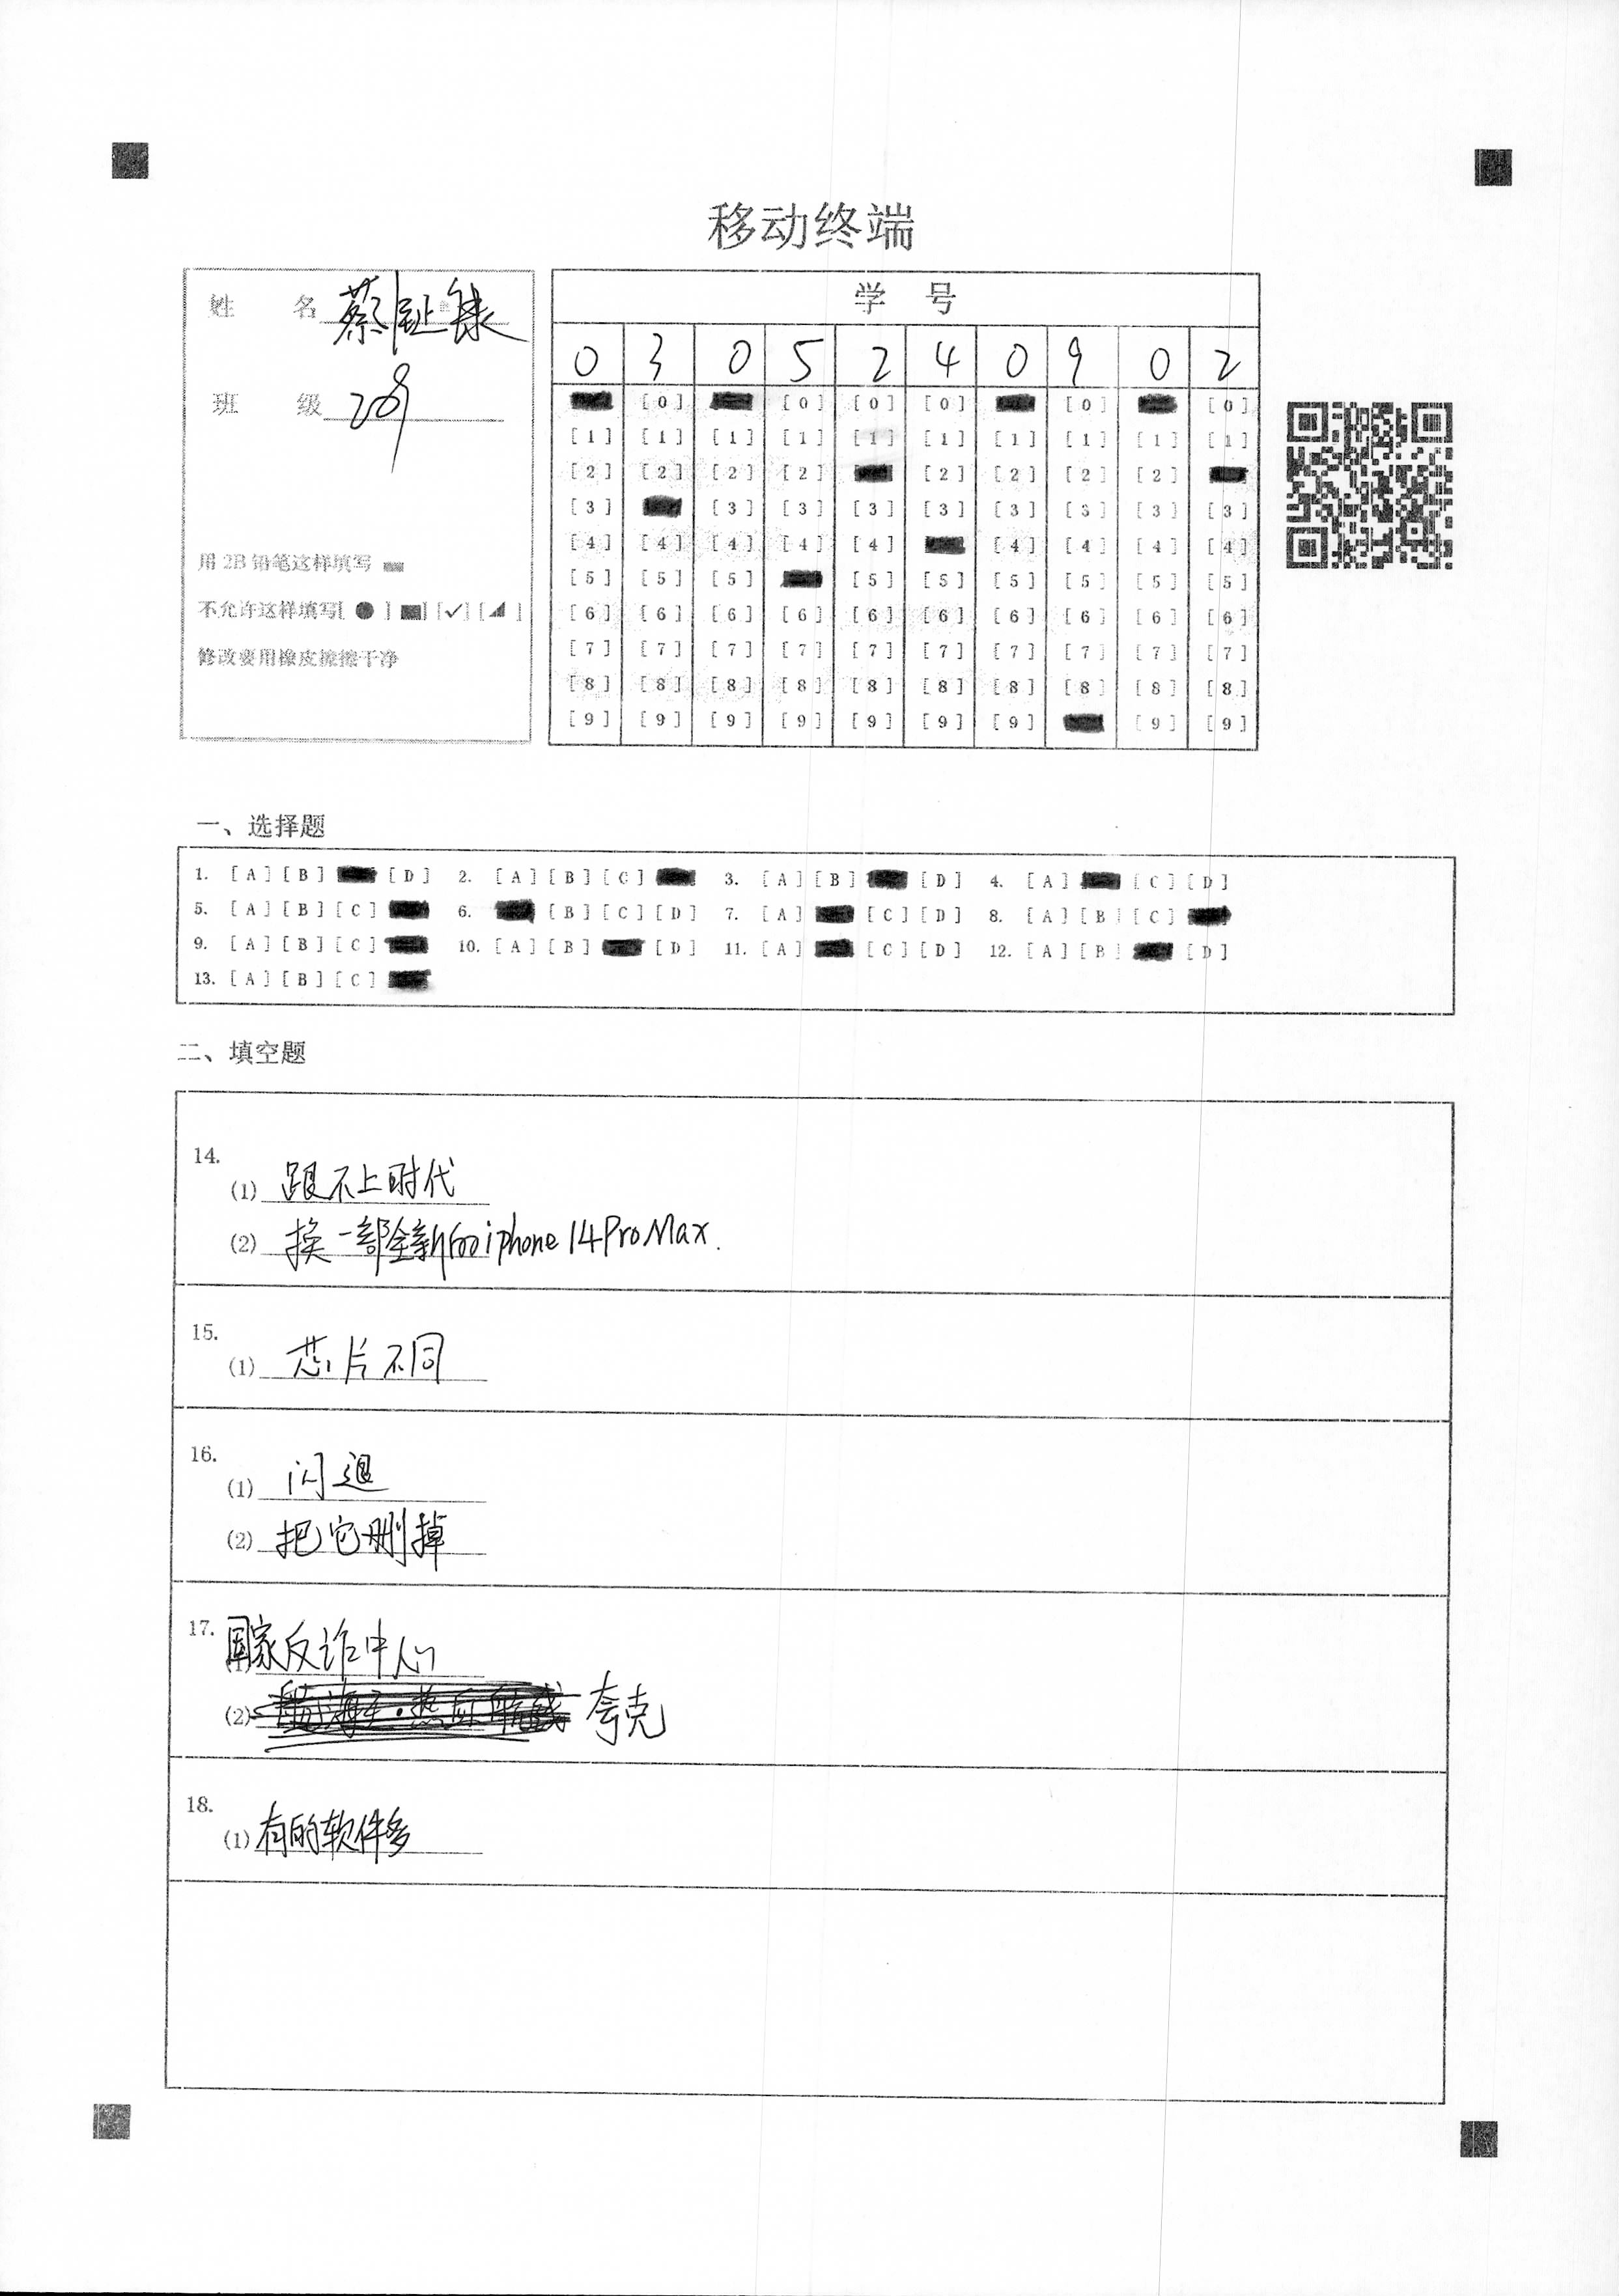 移动终端
姓 名 蔡
班 级 209
用 2B 铅笔这样填写
不允许这样填写[ ● ] [✓] [ ]
修改要用橡皮擦擦干净
学 号
0 3 0 5 2 4 0 9 0 2
[0] [0] [0] [0] [0] [0]
[1] [1] [1] [1] [1] [1] [1] [1] [1] [1]
[2] [2] [2] [2] [2] [2] [2] [2]
[3] [3] [3] [3] [3] [3] [3] [3] [3]
[4] [4] [4] [4] [4] [4] [4] [4] [4]
[5] [5] [5] [5] [5] [5] [5] [5] [5]
[6] [6] [6] [6] [6] [6] [6] [6] [6] [6]
[7] [7] [7] [7] [7] [7] [7] [7] [7] [7]
[8] [8] [8] [8] [8] [8] [8] [8] [8] [8]
[9] [9] [9] [9] [9] [9] [9] [9] [9]
一、选择题
1. [A] [B] [D] 2. [A] [B] [C] 3. [A] [B] [D] 4. [A] [C] [D]
5. [A] [B] [C] 6. [B] [C] [D] 7. [A] [C] [D] 8. [A] [B] [C]
9. [A] [B] [C] 10. [A] [B] [D] 11. [A] [C] [D] 12. [A] [B] [D]
13. [A] [B] [C]
二、填空题
14.
(1) 跟不上时代
(2) 换一部全新的iphone 14 Pro Max.
15.
(1) 芯片不同
16.
(1) 闪退
(2) 把它删掉
17.
(1) 国家反诈中心
(2) 夸克
18.
(1) 有的软件多